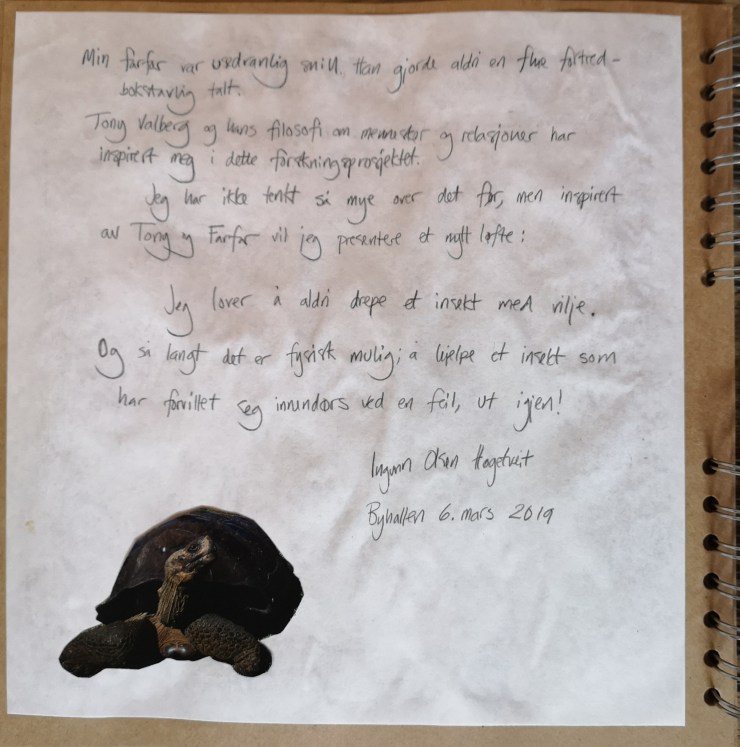 Min farfar var usedvanlig snill. Han gjorde aldri en flue fortred -
bokstavlig talt.
Tony Valberg og hans filosofi om mennesker og relasjoner har
inspirert meg i dette forskningsprosjektet.
Jeg har ikke tenkt så mye over det før, men inspirert
av Tony og Farfar vil jeg presentere et nytt løfte:
Jeg lover å aldri drepe et insekt med vilje.
Og så langt det er fysisk mulig; å hjelpe et insekt som
har forvillet seg innendørs ved en feil, ut igjen!
Ingunn Hagetveit
Byhallen 6. mars 2019